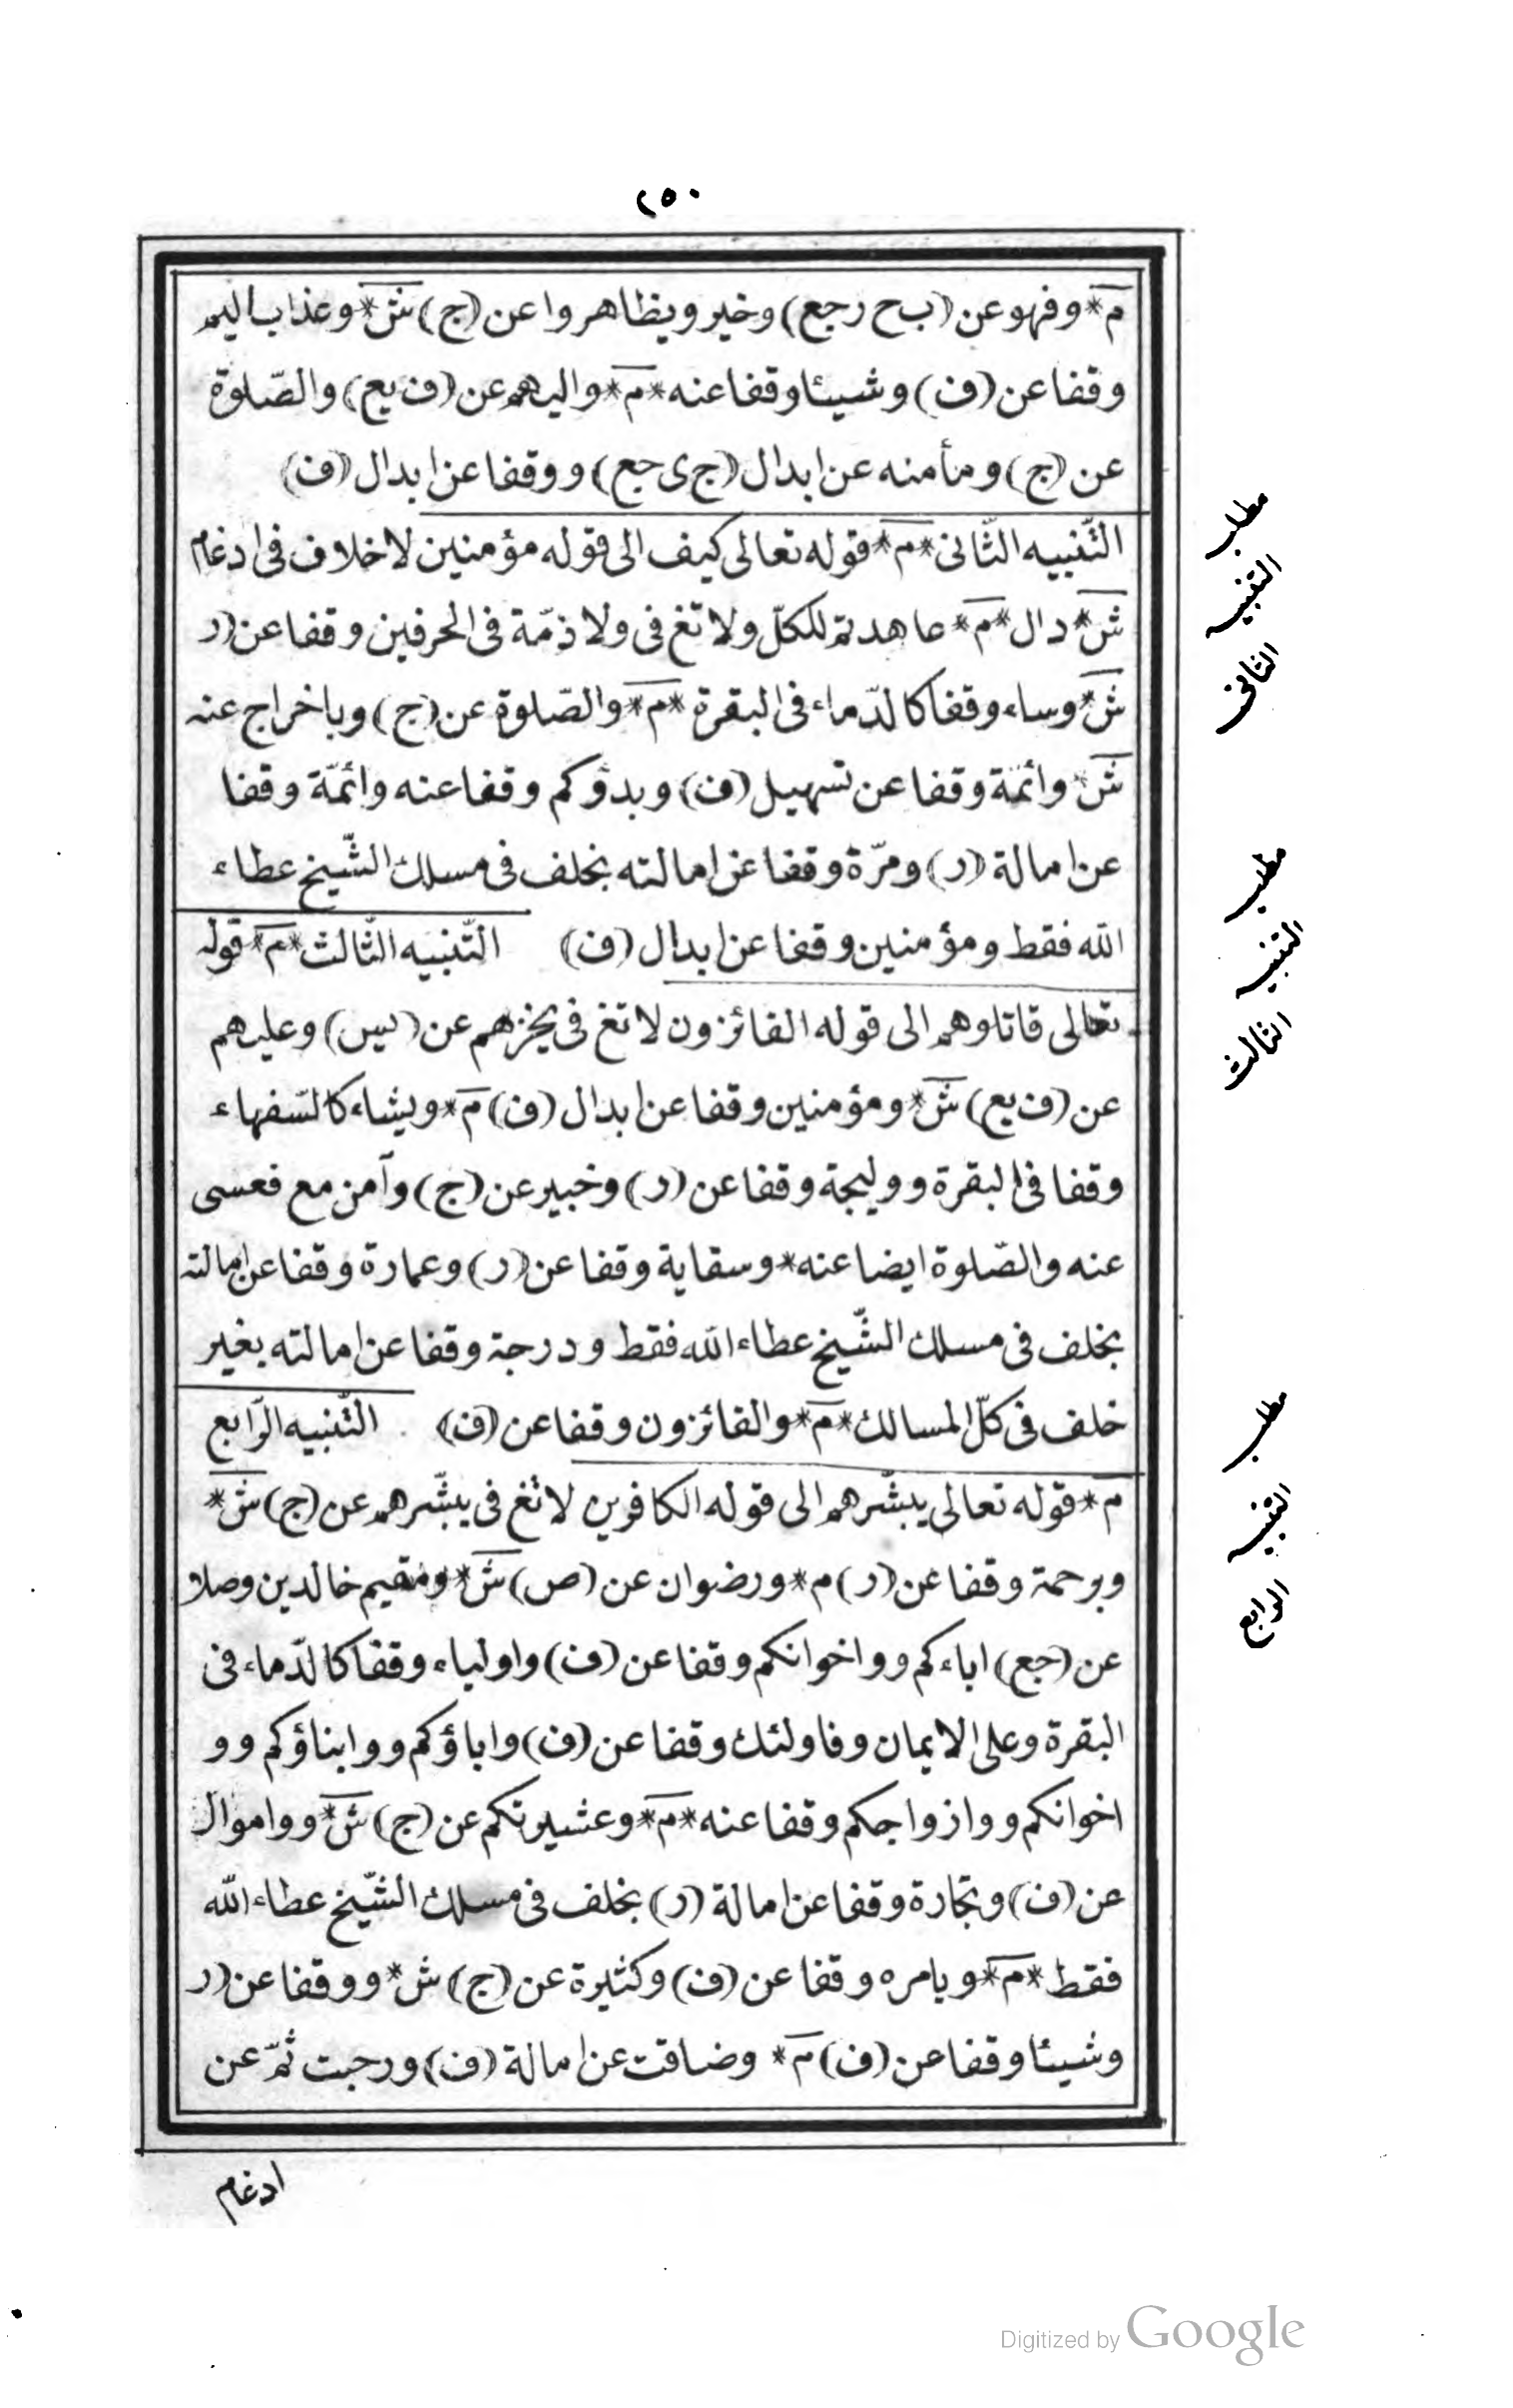 ٢٥٠
م* وفهو عن (ب ح ر جع) وخير ويظاهروا عن (ج) ش* وعذاب اليم
وقفا عن (ف) وشيئا وقفا عنه *م* واليهم عن (ف يع) والصّلوة
عن (ج) ومأمنه عن ابدال (ج ى جع) ووقفا عن ابدال (ف)
التّنبيه الثّانى *م* قوله تعالى كيف الى قوله مؤمنين لا خلاف فى ادغام
ش* دال *م* عاهدتم للكلّ ولا تغ فى ولا ذمّة فى الحرفين وقفا عن (ر
ش* وساء وقفا كالدّماء فى البقرة *م* والصّلوة عن (ج) وباخراج عنه
ش* وائمّة وقفا عن تسهيل (ف) وبدؤكم وقفا عنه وائمّة وقفا
عن امالة (ر) ومرّة وقفا عن امالته بخلف فى مسلك الشّيخ عطاء
الله فقط ومؤمنين وقفا عن ابدال (ف) التّنبيه الثّالث *م* قوله
تعالى قاتلوهم الى قوله الفائزون لا تغ فى يخزهم عن (يس) وعليهم
عن (ف يع) ش* ومؤمنين وقفا عن ابدال (ف) م* ويشاء كالسّفهاء
وقفا فى البقرة ووليجة وقفا عن (ر) وخبير عن (ج) وآمن مع فعسى
عنه والصّلوة ايضا عنه* وسقاية وقفا عن (ر) وعمارة وقفا عن امالته
بخلف فى مسلك الشّيخ عطاء الله فقط ودرجة وقفا عن امالته بغير
خلف فى كلّ المسالك *م* والفائزون وقفا عن (ف) التّنبيه الرّابع
م* قوله تعالى يبشّرهم الى قوله الكافرين لا تغ فى يبشّرهم عن (ج) ش*
وبرحمة وقفا عن (ر) م* ورضوان عن (ص) ش* ومقيم خالدين وصلا
عن (جع) اباءكم وواخوانكم وقفا عن (ف) واولياء وقفا كالدّماء فى
البقرة وعلى الايمان وفاولئك وقفا عن (ف) واباؤكم ووابناؤكم وو
اخوانكم ووازواجكم وقفا عنه *م* وعشيرتكم عن (ج) ش* وواموال
عن (ف) وتجارة وقفا عن امالة (ر) بخلف فى مسلك الشّيخ عطاء الله
فقط *م* وبامره وقفا عن (ف) وكثيرة عن (ج) ش* ووقفا عن (ر
وشيئا وقفا عن (ف) م* وضاقت عن امالة (ف) ورحبت ثمّ عن
ادغام
مطلب
التنبيه
الثانى
مطلب
التنبيه
الثالث
مطلب
التنبيه
الرابع
Digitized by Google